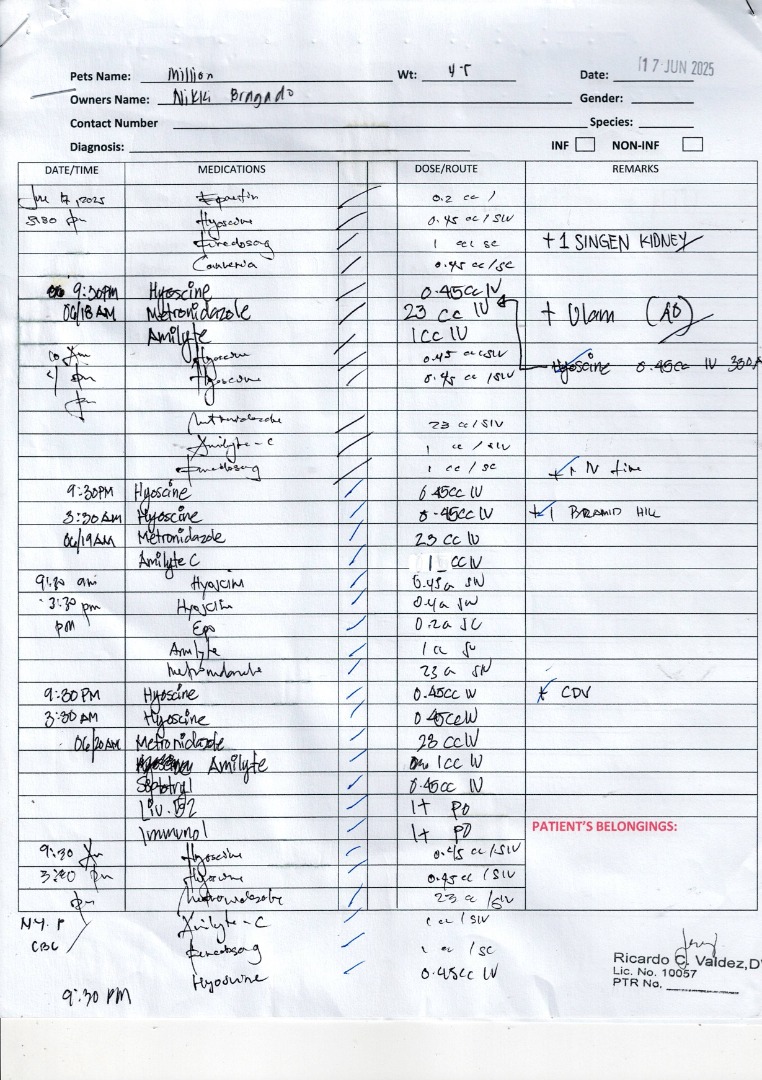 Pets Name: Million Wt: 4.5 Date: 17 JUN 2025
Owners Name: Nikki Bragado Gender:
Contact Number Species:
Diagnosis: INF NON-INF
DATE/TIME MEDICATIONS DOSE/ROUTE REMARKS
June 17, 2025 0.2 cc /
3:30 pm Hyoscine 0.45 cc / SIV
1 cc / sc +1 SINGEN KIDNEY
Convenia 0.45 cc / sc
9:30PM Hyoscine 0.45cc IV
06/18 AM Metronidazole 23 cc IV + Ulam
Amilyte 1cc IV
Hyoscine 0.45 cc / SIV Hyoscine 0.45cc IV
pm Hyoscine 0.45 cc / SIV
Metronidazole 23 cc / SIV
Amilyte-C 1 cc / SIV
1 cc / sc
9:30PM Hyoscine 0.45cc IV
3:30AM Hyoscine 0.45cc IV +1 BRAMID HILL
06/19AM Metronidazole 23 cc IV
Amilyte C 1 cc IV
9:30 am Hyoscine 0.45cc SIV
3:30 pm Hyoscine
PM Epo 0.2cc SC
Amilyte 1cc
Metronidazole 23cc SIV
9:30 PM Hyoscine 0.45cc IV CDV
3:30 AM Hyoscine 0.45cc IV
06/20AM Metronidazole 23 cc IV
Amilyte 1cc IV
Septotryl 0.45cc IV
Liv.52 1t PO
Immunol 1t PO
PATIENT'S BELONGINGS:
9:30 Am Hyoscine 0.45 cc / SIV
3:30 pm Hyoscine 0.45 cc / SIV
pm Metronidazole 23 cc / SIV
Amilyte-C 1 cc / SIV
CBC 1 cc / SC
Hyoscine 0.45cc IV
9:30 PM
Ricardo C. Valdez, D
Lic. No. 10057
PTR No.